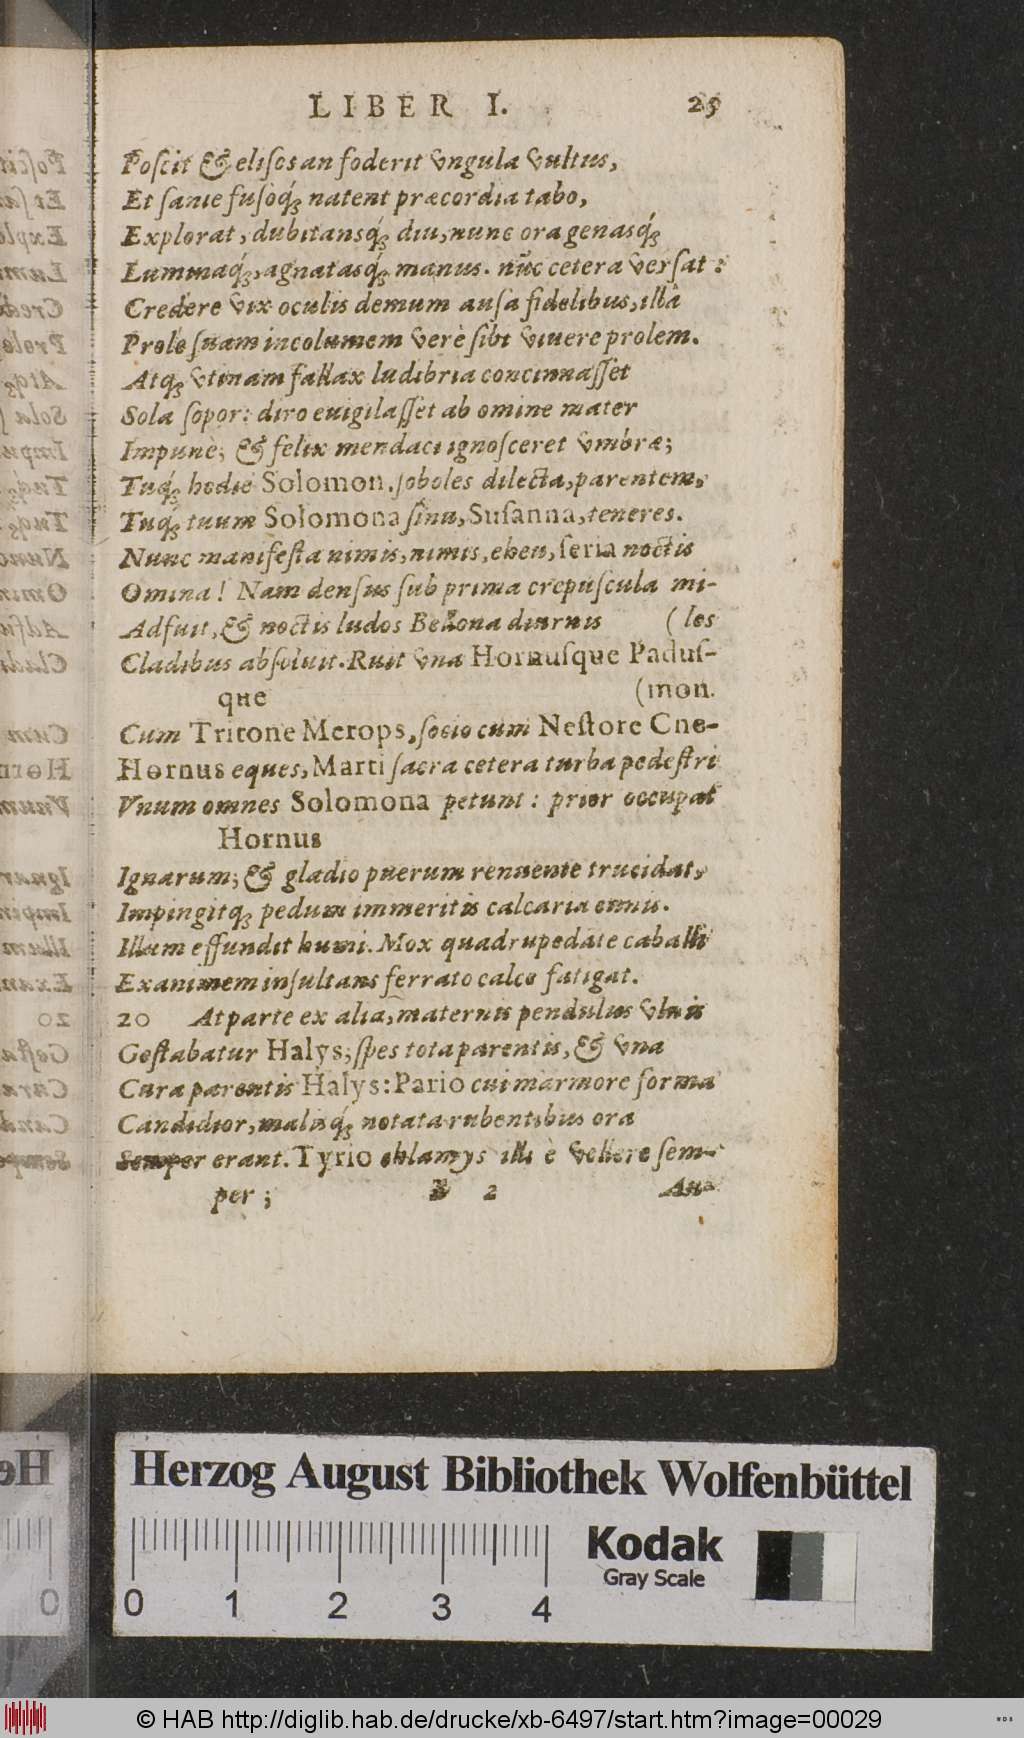 LIBER I. 25
Poſcit & eliſos an foderit vngula vultus,
Et ſanie fuſoq́; natent præcordia tabo,
Explorat, dubitansq́; diu, nunc ora genasq́;
Luminaq́;, agnatasq́; manus. nūc cetera verſat:
Credere vix oculis demum auſa fidelibus, illâ
Prole ſuam incolumem verè ſibi viuere prolem.
Atq; vtinam fallax ludibria concinnaſſet
Sola ſopor: diro euigilaſſet ab omine mater
Impunè; & felix mendaci ignoſceret vmbræ;
Tuq́; hodie Solomon. ſoboles dilecta, parentem,
Tuq́; tuum Solomona ſinu, Suſanna, teneres.
Nunc manifeſta nimis, nimis, eheu, ſeria noctis
Omina! Nam denſus ſub prima crepuſcula mi-
Adfuit, & noctis ludos Bellona diurnis (les
Cladibus abſoluit. Ruit vna Hornuſque Paduſ-
que (mon.
Cum Tritone Merops, ſocio cum Neſtore Cne-
Hornus eques, Marti ſacra cetera turba pedeſtri
Vnum omnes Solomona petunt: prior occupat
Hornus
Ignarum; & gladio puerum renuente trucidat,
Impingitq; pedum immeritis calcaria ennis.
Illum effundit humi. Mox quadrupedãte caballi
Exanimem inſultans ferrato calce fatigat.
20 At parte ex alia, maternis pendulus vlnis
Geſtabatur Halys; ſpes tota parentis, & vna
Cura parentis Halys: Pario cui marmore forma
Candidior, malisq́; notata rubentibus ora
Semper erant. Tyrio chlamys illi è vellere ſem-
per; B 2 An-
Herzog August Bibliothek Wolfenbüttel
Kodak
Gray Scale
0 1 2 3 4
© HAB http://diglib.hab.de/drucke/xb-6497/start.htm?image=00029